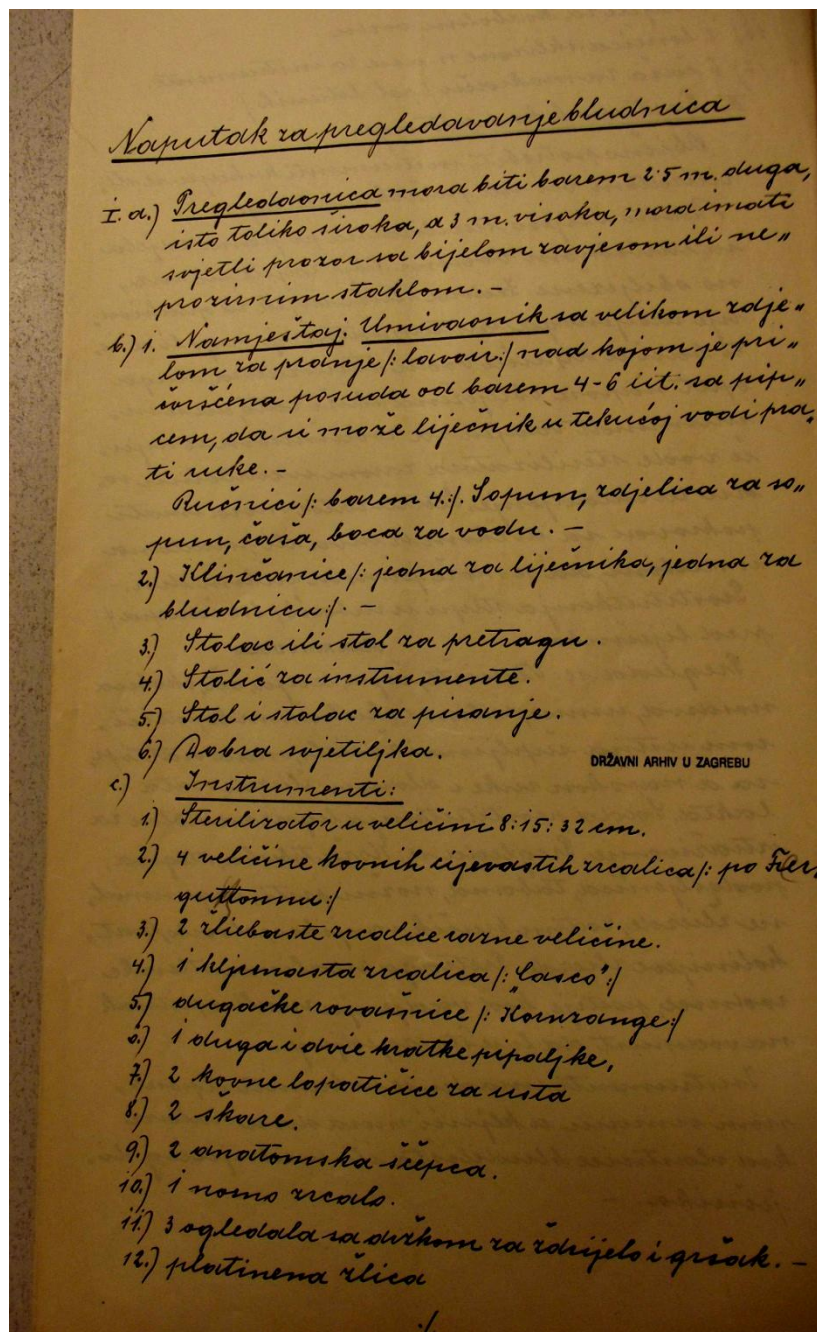 Naputak za pregledavanje bludnica
I. a.) Pregledaonica mora biti barem 2·5 m. duga,
isto toliko široka, a 3 m. visoka, mora imati
svjetli prozor sa bijelom zavjesom ili ne„
prozirnim staklom. -
b.) 1. Namještaj: Umivaonik sa velikom zdje„
lom za pranje /: lavoir:/ nad kojom je pri„
čvršćena posuda od barem 4-6 lit. sa pip„
cem, da si može liječnik u tekućoj vodi pra„
ti ruke. -
Ručnici /: barem 4.:/. Sapun, zdjelica za sa„
pun, čaša, boca za vodu. -
2.) Klinčanice /: jedna za liječnika, jedna za
bludnicu :/. -
3.) Stolac ili stol za pretragu.
4.) Stolić za instrumente.
5.) Stol i stolac za pisanje.
6.) Dobra svjetiljka.
DRŽAVNI ARHIV U ZAGREBU
c.) Instrumenti:
1.) Sterilizator u veličini 8:15:32 cm.
2.) 4 veličine kovnih cijevastih zrcalica /: po Fer„
gussonu :/
3.) 2 žliebaste zrcalice razne veličine.
4.) 1 kljunasta zrcalica /: „Casco" :/
5.) dugačke rovašnice /: Kornzange :/
6.) 1 duga i dvie kratke pipaljke,
7.) 2 kovne lopatičice za usta
8.) 2 škare.
9.) 2 anatomska ščepca.
10.) 1 nosno zrcalo.
11.) 3 ogledala sa drškom za ždrijelo i gršak. -
12.) platinena žlica
./.